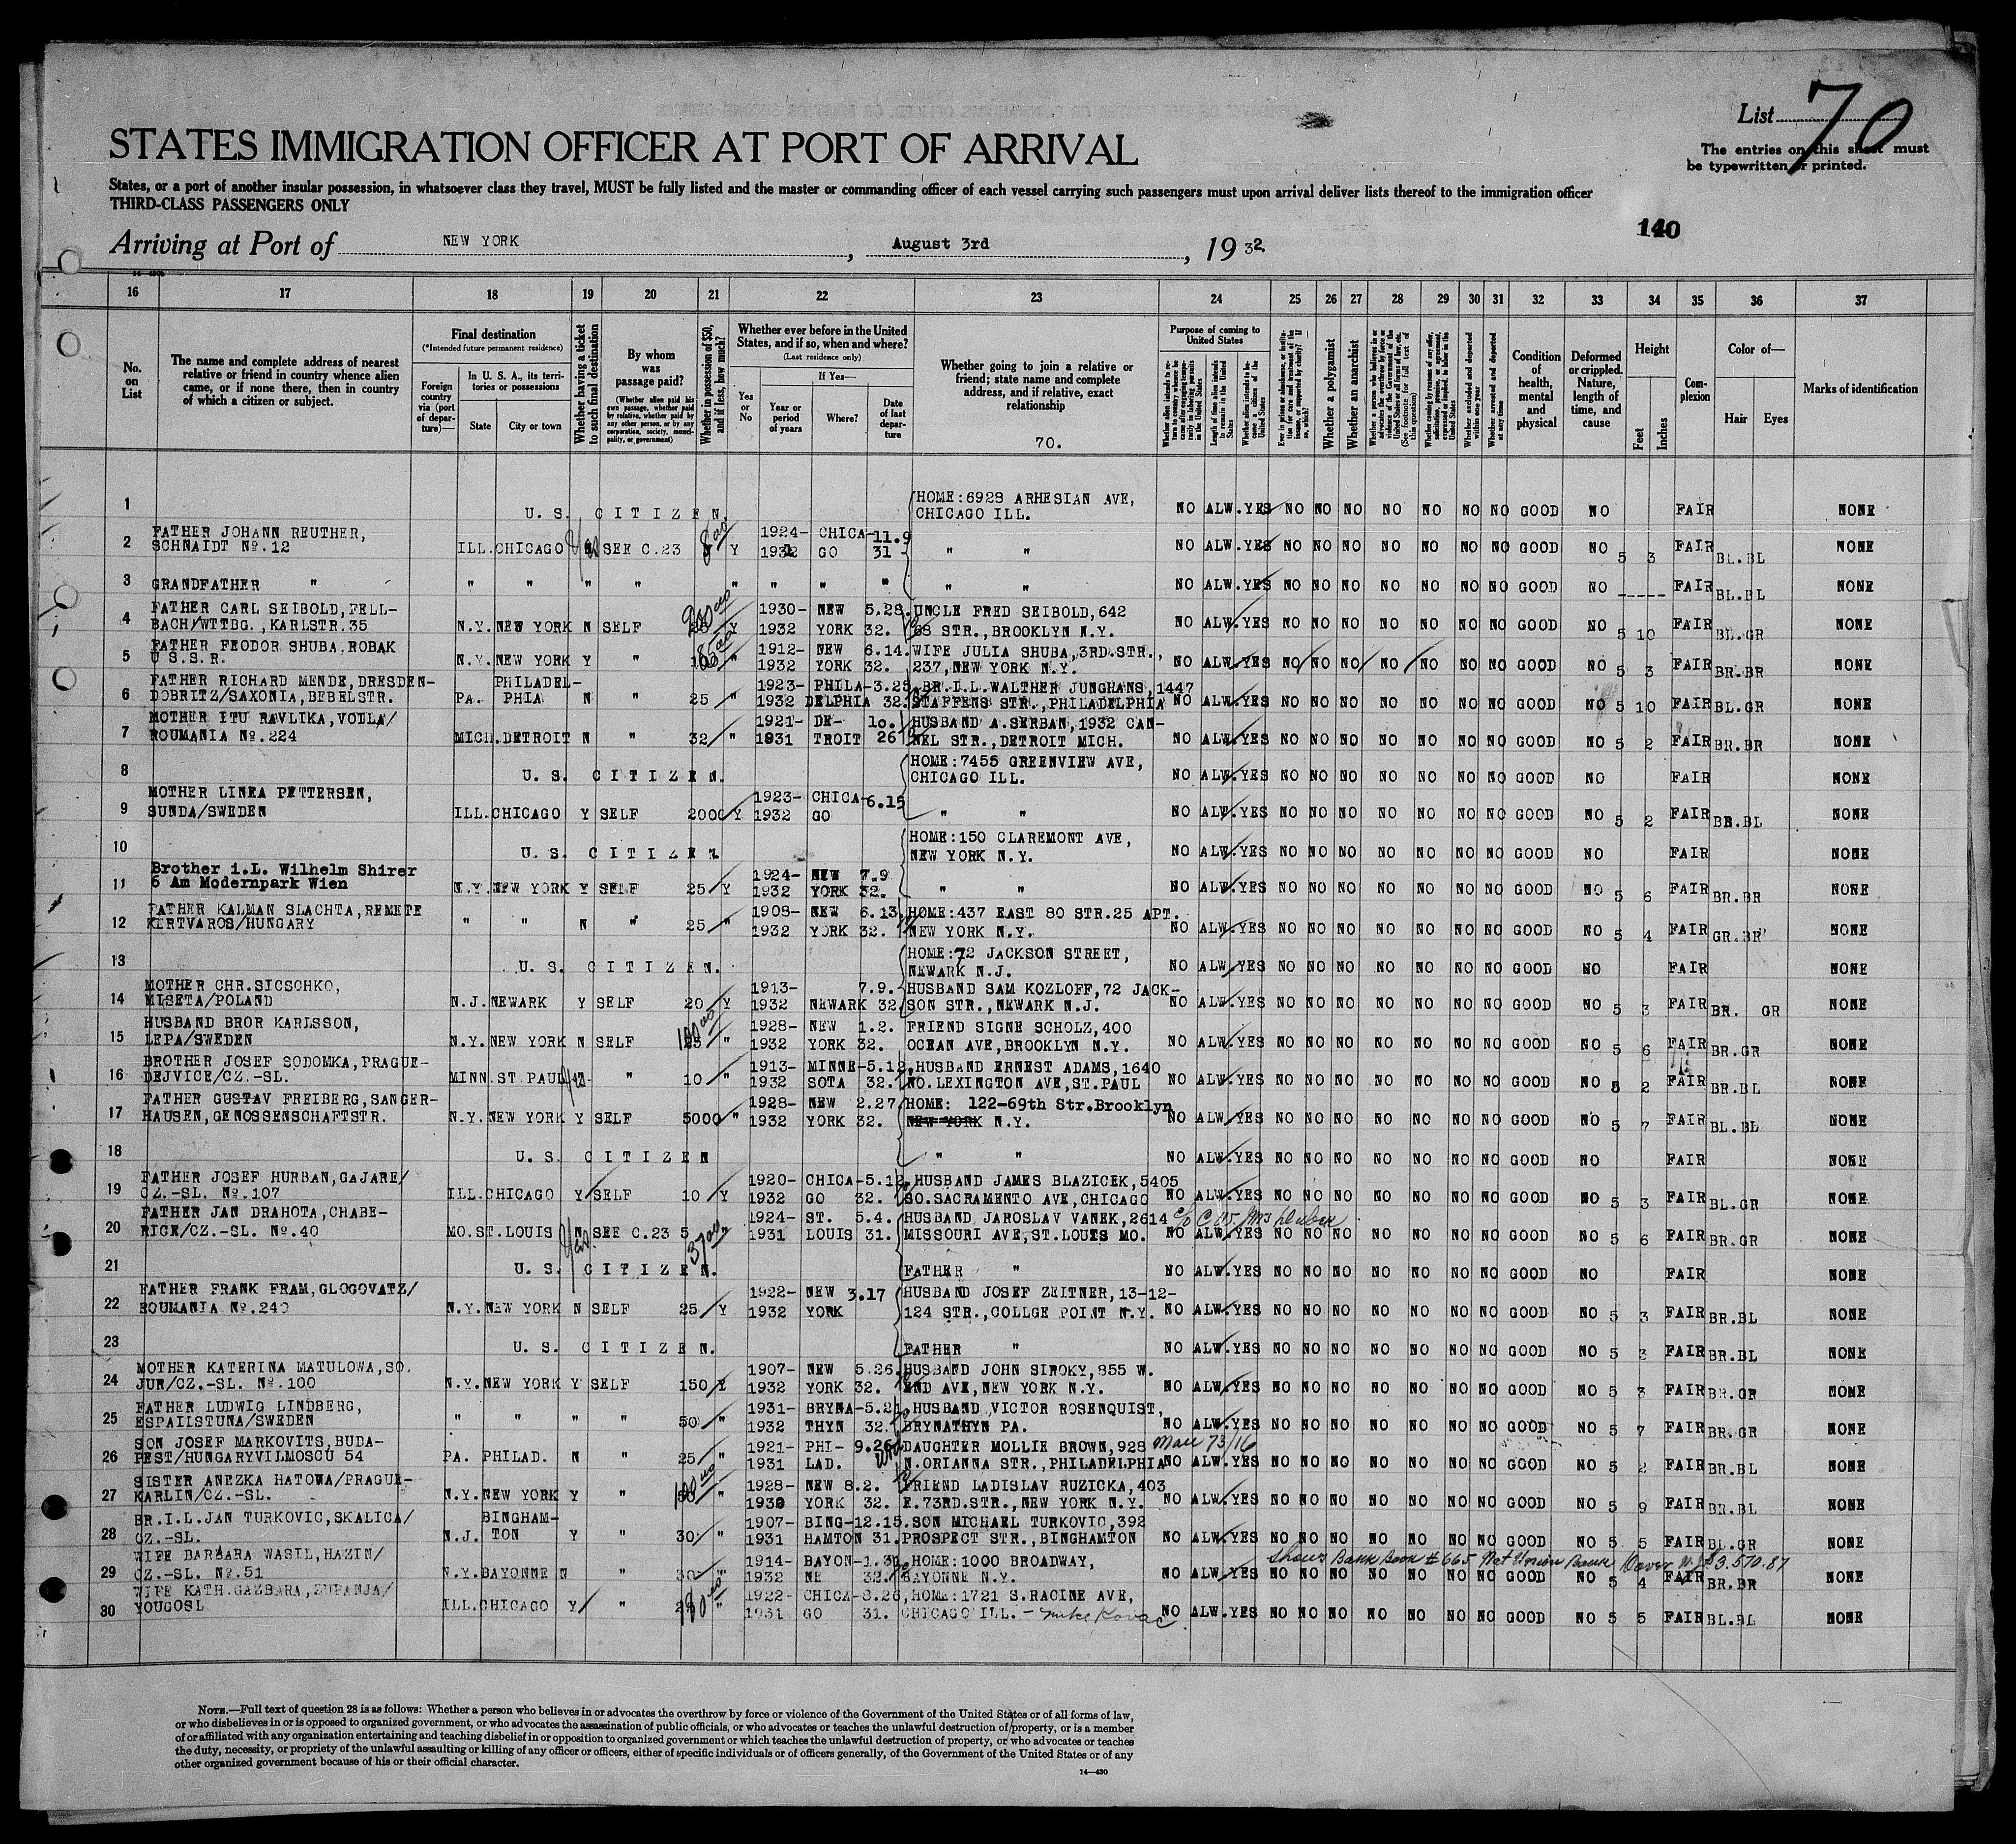 List 70
The entries on this sheet must
be typewritten or printed.
STATES IMMIGRATION OFFICER AT PORT OF ARRIVAL
States, or a port of another insular possession, in whatsoever class they travel, MUST be fully listed and the master or commanding officer of each vessel carrying such passengers must upon arrival deliver lists thereof to the immigration officer
THIRD-CLASS PASSENGERS ONLY
140
Arriving at Port of NEW YORK, August 3rd, 1932
16 17 18 19 20 21 22 23 24 25 26 27 28 29 30 31 32 33 34 35 36 37
No. on List
The name and complete address of nearest relative or friend in country whence alien came, or if none there, then in country of which a citizen or subject.
Final destination
(*Intended future permanent residence)
Foreign country via (port of departure)—
In U. S. A., its territories or possessions
State
City or town
Whether having a ticket to such final destination
By whom was passage paid?
(Whether alien paid his own passage, whether paid by relative, whether paid by any other person, or by any corporation, society, municipality, or government)
Whether in possession of $50, and if less, how much?
Whether ever before in the United States, and if so, when and where?
(Last residence only)
Yes or No
If Yes—
Year or period of years
Where?
Date of last departure
Whether going to join a relative or friend; state name and complete address, and if relative, exact relationship
70.
Purpose of coming to United States
Whether alien intends to return to country whence he came after engaging temporarily in laboring pursuits in the United States
Length of time alien intends to remain in the United States
Whether alien intends to become a citizen of the United States
Ever in prison or almshouse, or institution for care and treatment of the insane, or supported by charity? If so, which?
Whether a polygamist
Whether an anarchist
Whether a person who believes in or advocates the overthrow by force or violence of the Government of the United States or all forms of law, etc. (See footnote for full text of this question)
Whether coming by reason of any offer, solicitation, promise, or agreement, expressed or implied, to labor in the United States
Whether excluded and deported within one year
Whether arrested and deported at any time
Condition of health, mental and physical
Deformed or crippled. Nature, length of time, and cause
Height
Feet
Inches
Complexion
Color of—
Hair
Eyes
Marks of identification
HOME:6928 ARHESIAN AVE,
1 U. S. CITIZEN. CHICAGO ILL. NO ALW. YES NO NO NO NO NO NO NO GOOD NO FAIR NONE
FATHER JOHANN REUTHER, 1924- CHICA- 11.9
2 SCHNAIDT No.12 ILL. CHICAGO SEE C.23 Y 1932 GO 31 " " NO ALW. YES NO NO NO NO NO NO NO GOOD NO 5 3 FAIR BL. BL NONE
3 GRANDFATHER " " " " " " " " " " " NO ALW. YES NO NO NO NO NO NO NO GOOD NO ----- FAIR BL. BL NONE
FATHER CARL SEIBOLD, FELL- 1930- NEW 5.28. UNCLE FRED SEIBOLD, 642
4 BACH/WTTBG., KARLSTR.35 N.Y. NEW YORK N SELF Y 1932 YORK 32. 68 STR., BROOKLYN N.Y. NO ALW. YES NO NO NO NO NO NO NO GOOD NO 5 10 FAIR BL. GR NONE
FATHER FEODOR SHUBA. ROBAK 1912- NEW 6.14. WIFE JULIA SHUBA, 3RD.STR.,
5 U S.S.R. N.Y. NEW YORK Y " " 1932 YORK 32. 237, NEW YORK N.Y. NO ALW. YES NO NO NO NO NO NO NO GOOD NO 5 3 FAIR BR. BR NONE
FATHER RICHARD MENDE, DRESDEN- PHILADEL- 1923- PHILA- 3.25. BR.I.L. WALTHER JUNGHANS, 1447
6 DOBRITZ/SAXONIA, BEBELSTR. PA. PHIA N " 25 " 1932 DELPHIA 32. STAFFENS STR., PHILADELPHIA NO ALW. YES NO NO NO NO NO NO NO GOOD NO 5 10 FAIR BL. GR NONE
MOTHER ITU RAVLIKA, VOILA/ 1921- DE- 10. HUSBAND A. SERBAN, 1932 CAN-
7 ROUMANIA No.224 MICH. DETROIT N " 32 " 1931 TROIT 26 NEL STR., DETROIT MICH. NO ALW. YES NO NO NO NO NO NO NO GOOD NO 5 2 FAIR BR. BR NONE
HOME:7455 GREENVIEW AVE,
8 U. S. CITIZEN. CHICAGO ILL. NO ALW. YES NO NO NO NO NO NO NO GOOD NO FAIR NONE
MOTHER LINEA PETTERSEN, 1923- CHICA- 6.15
9 SUNDA/SWEDEN ILL. CHICAGO Y SELF 2000 Y 1932 GO " " NO ALW. YES NO NO NO NO NO NO NO GOOD NO 5 2 FAIR BR. BL NONE
HOME:150 CLAREMONT AVE,
10 U. S. CITIZEN NEW YORK N.Y. NO ALW. YES NO NO NO NO NO NO NO GOOD NO FAIR NONE
Brother i.L. Wilhelm Shirer 1924- NEW 7.9
11 6 Am Modernpark Wien N.Y. NEW YORK Y SELF 25 Y 1932 YORK 32. " " NO ALW. YES NO NO NO NO NO NO NO GOOD NO 5 6 FAIR BR. BR NONE
FATHER KALMAN SLACHTA, REMETE 1908- NEW 6.13. HOME:437 EAST 80 STR.25 APT.
12 KERTVAROS/HUNGARY " " N " 25 " 1932 YORK 32. NEW YORK N.Y. NO ALW. YES NO NO NO NO NO NO NO GOOD NO 5 4 FAIR GR. BR NONE
HOME:72 JACKSON STREET,
13 U. S. CITIZEN. NEWARK N.J. NO ALW. YES NO NO NO NO NO NO NO GOOD NO FAIR NONE
MOTHER CHR.SICSCHKO, 1913- 7.9. HUSBAND SAM KOZLOFF, 72 JACK-
14 MISETA/POLAND N.J. NEWARK Y SELF 20 Y 1932 NEWARK 32 SON STR., NEWARK N.J. NO ALW. YES NO NO NO NO NO NO NO GOOD NO 5 3 FAIR BR. GR NONE
HUSBAND BROR KARLSSON, 1928- NEW 1.2. FRIEND SIGNE SCHOLZ, 400
15 LEPA/SWEDEN N.Y. NEW YORK N SELF 100.00 " 1932 YORK 32. OCEAN AVE, BROOKLYN N.Y. NO ALW. YES NO NO NO NO NO NO NO GOOD NO 5 6 FAIR BR. GR NONE
BROTHER JOSEF SODOMKA, PRAGUE- 1913- MINNE- 5.12. HUSBAND ERNEST ADAMS, 1640
16 DEJVICE/CZ.-SL. MINN. ST. PAUL " 10 " 1932 SOTA 32. NO. LEXINGTON AVE, ST. PAUL NO ALW. YES NO NO NO NO NO NO NO GOOD NO 5 2 FAIR BR. BL NONE
FATHER GUSTAV FREIBERG, SANGER- 1928- NEW 2.27 HOME: 122-69th Str. Brooklyn
17 HAUSEN, GENOSSENSCHAFTSTR. N.Y. NEW YORK Y SELF 5000 " 1932 YORK 32. NEW YORK N.Y. NO ALW. YES NO NO NO NO NO NO NO GOOD NO 5 7 FAIR BL. BL NONE
18 U. S. CITIZEN " " NO ALW. YES NO NO NO NO NO NO NO GOOD NO FAIR NONE
FATHER JOSEF HURBAN, GAJARE/ 1920- CHICA- 5.12. HUSBAND JAMES BLAZICEK, 5405
19 CZ.-SL. No.107 ILL. CHICAGO Y SELF 10 Y 1932 GO 32. SO. SACRAMENTO AVE, CHICAGO NO ALW. YES NO NO NO NO NO NO NO GOOD NO 5 3 FAIR BL. GR NONE
FATHER JAN DRAHOTA, CHABE- 1924- ST. 5.4. HUSBAND JAROSLAV VANEK, 2614
20 RICE/CZ.-SL. No.40 MO. ST. LOUIS N SEE C.23 5 " 1931 LOUIS 31. MISSOURI AVE, ST. LOUIS MO. NO ALW. YES NO NO NO NO NO NO NO GOOD NO 5 6 FAIR BR. GR NONE
21 U. S. CITIZEN. FATHER " NO ALW. YES NO NO NO NO NO NO NO GOOD NO FAIR NONE
FATHER FRANK FRAM, GLOGOVATZ/ 1922- NEW 3.17 HUSBAND JOSEF ZEITNER, 13-12-
22 ROUMANIA No.240 N.Y. NEW YORK N SELF 25 Y 1932 YORK 124 STR., COLLGE POINT N.Y. NO ALW. YES NO NO NO NO NO NO NO GOOD NO 5 3 FAIR BR. BL NONE
23 U. S. CITIZEN. FATHER " NO ALW. YES NO NO NO NO NO NO NO GOOD NO 5 3 FAIR BR. BL NONE
MOTHER KATERINA MATULOWA, SO. 1907- NEW 5.26. HUSBAND JOHN SIROKY, 855 W.
24 JUR/CZ.-SL. No.100 N.Y. NEW YORK Y SELF 150 Y 1932 YORK 32. END AVE, NEW YORK N.Y. NO ALW. YES NO NO NO NO NO NO NO GOOD NO 5 3 FAIR BR. GR NONE
FATHER LUDWIG LINDBERG, 1931- BRYNA- 5.21. HUSBAND VICTOR ROSENQUIST,
25 ESPAILSTUNA/SWEDEN " " " " 50 " 1932 THYN 32. BRYNATHYN PA. NO ALW. YES NO NO NO NO NO NO NO GOOD NO 5 7 FAIR BR. GR NONE
SON JOSEF MARKOVITS, BUDA- 1921- PHI- 9.26. DAUGHTER MOLLIE BROWN, 928
26 PEST/HUNGARYVILMOSCU 54 PA. PHILAD. N " 25 " 1931 LAD. N. ORIANNA STR., PHILADELPHIA NO ALW. YES NO NO NO NO NO NO NO GOOD NO 5 2 FAIR BR. BL NONE
SISTER ANEZKA HATOWA/PRAGUE- 1928- NEW 8.2. FRIEND LADISLAV RUZICKA, 403
27 KARLIN/CZ.-SL. N.Y. NEW YORK Y " 100.00 " 1930 YORK 32. E. 73RD. STR., NEW YORK N.Y. NO ALW. YES NO NO NO NO NO NO NO GOOD NO 5 9 FAIR BR. BL NONE
BR.I.L. JAN TURKOVIC, SKALICA/ BINGHAM- 1907- BING- 12.15. SON MICHAEL TURKOVIC, 392
28 CZ.-SL. N.J. TON Y " 30 " 1931 HAMTON 31. PROSPECT STR., BINGHAMTON NO ALW. YES NO NO NO NO NO NO NO GOOD NO 5 5 FAIR BL. GR NONE
WIFE BARBARA WASIL, HAZIN/ 1914- BAYON- 1.31. HOME:1000 BROADWAY, Shows Bank Book #665 Nat Union Bank Dover N.J. $3,570.87
29 CZ.-SL. No.51 N.Y. BAYONNE N " 30 " 1932 NE 32. BAYONNE N.Y. NO ALW. YES NO NO NO NO NO NO NO GOOD NO 5 4 FAIR BR. BR NONE
WIFE KATH. GAZBARA, ZUPANJA/ 1922- CHICA- 8.26, HOME:1721 S. RACINE AVE,
30 YOUGOSL ILL. CHICAGO Y " " 1931 GO 31. CHICAGO ILL. - Mike Kovac NO ALW. YES NO NO NO NO NO NO NO GOOD NO 5 5 FAIR BL. BL NONE
NOTE.—Full text of question 28 is as follows: Whether a person who believes in or advocates the overthrow by force or violence of the Government of the United States or of all forms of law,
or who disbelieves in or is opposed to organized government, or who advocates the assassination of public officials, or who advocates or teaches the unlawful destruction of property, or is a member
of or affiliated with any organization entertaining and teaching disbelief in or opposition to organized government or which teaches the unlawful destruction of property, or who advocates or teaches
the duty, necessity, or propriety of the unlawful assaulting or killing of any officer or officers, either of specific individuals or of officers generally, of the Government of the United States or of any
other organized government because of his or their official character.
14—430